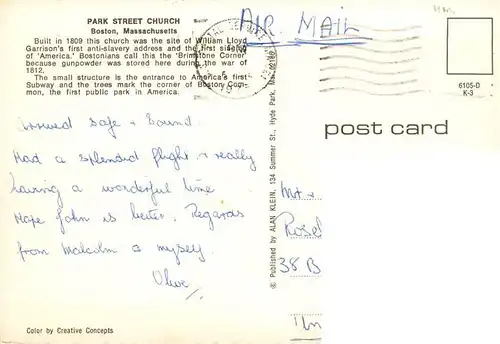 PARK STREET CHURCH
Boston, Massachusetts
Built in 1809 this church was the site of William Lloyd
Garrison's first anti-slavery address and the first singing
of 'America.' Bostonians call this the 'Brimstone Corner'
because gunpowder was stored here during the war of
1812.
The small structure is the entrance to America's first
Subway and the trees mark the corner of Boston Com-
mon, the first public park in America.
AIR MAIL
6105-D
K-3
post card
Arrived safe + sound.
Had a splendid flight + really
having a wonderful time
Hope John is better. Regards
from Malcolm & myself.
Olive
© Published by ALAN KLEIN, 134 Summer St., Hyde Park, Mass. 02136
Mr +
38 B
Color by Creative Concepts